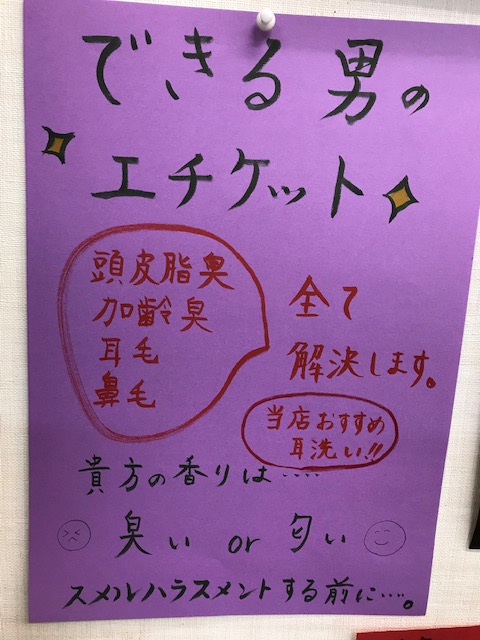 できる男の
エチケット
頭皮脂臭
加齢臭
耳毛
鼻毛
全て
解決します。
当店おすすめ
耳洗い!!
貴方の香りは……
臭い or 匂い
スメルハラスメントする前に….。